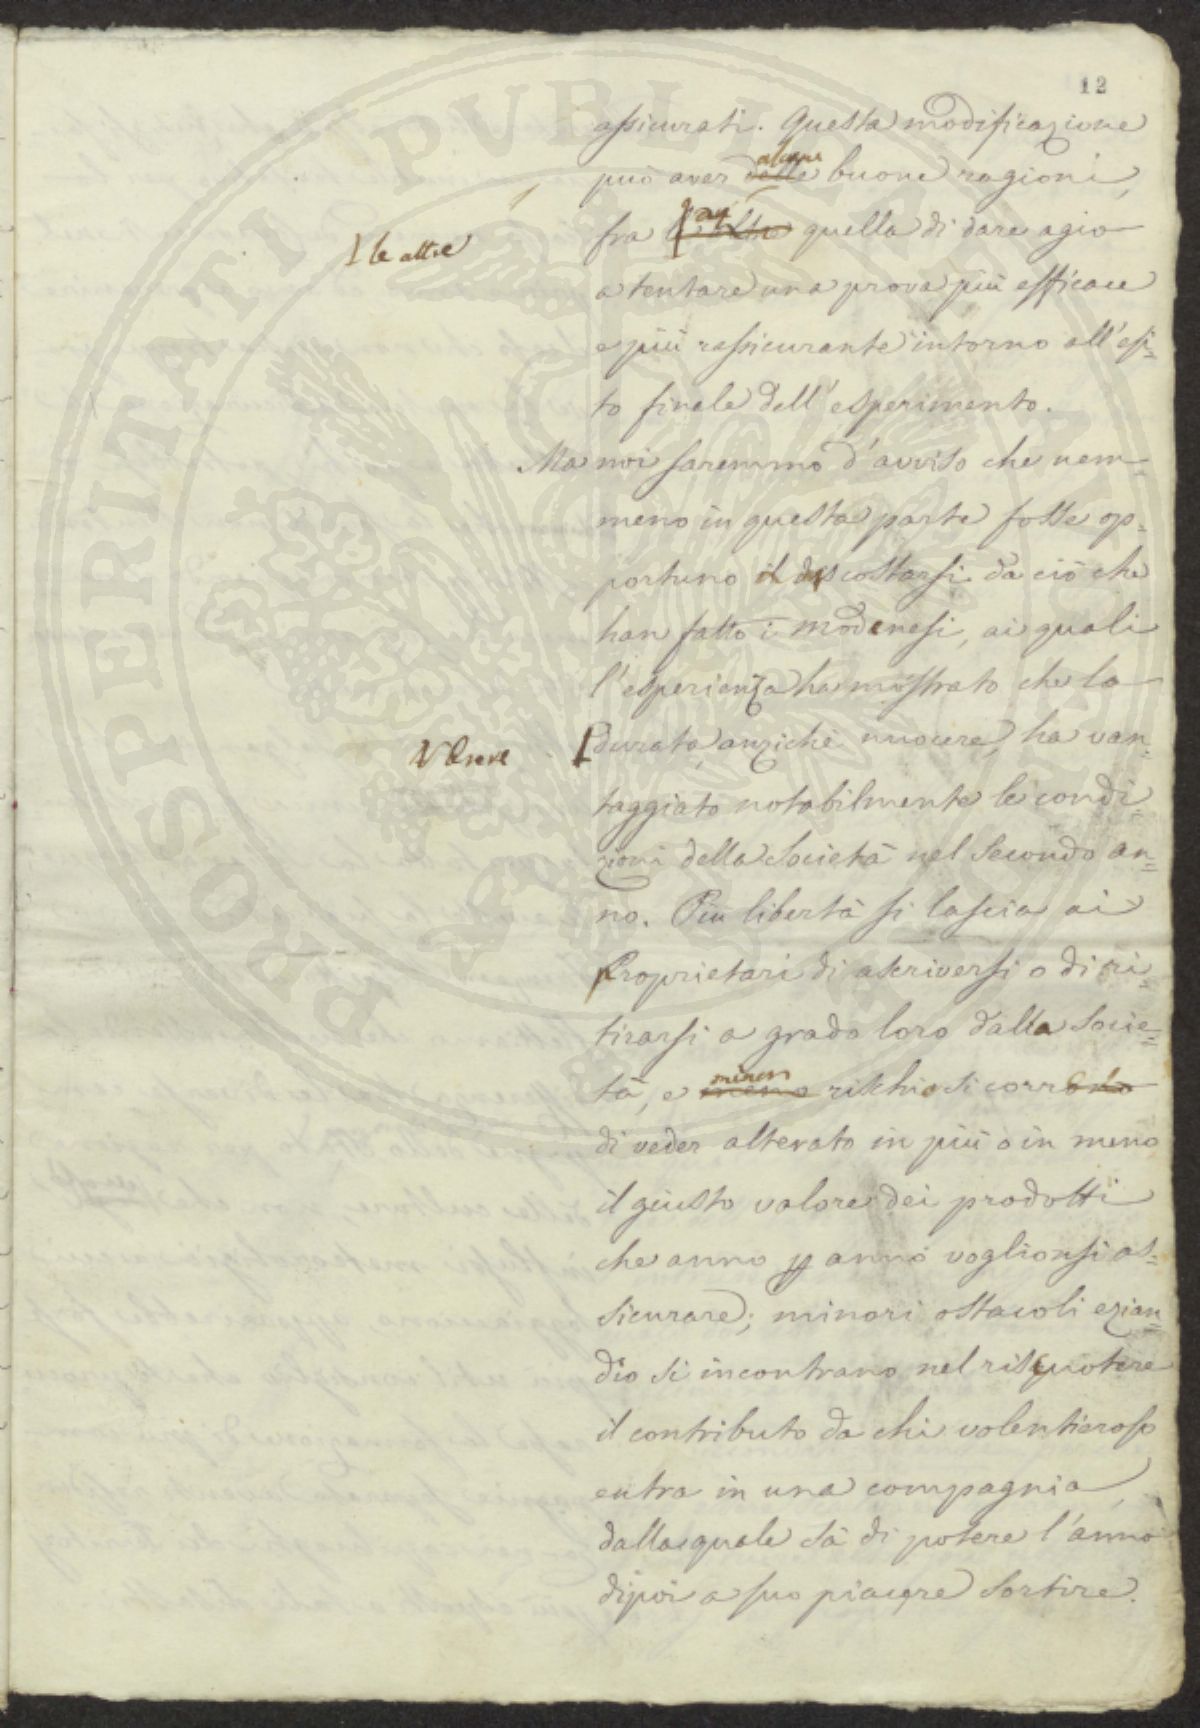 12
assicurati. Questa modificazione
alcune
può aver delle buone ragioni,
fra l'altre quella di dare agio
I le altre
a tentare una prova più efficace
e più rassicurante intorno all'esi=
to finale dell'esperimento.
Ma noi saremmo d'avviso che nem=
meno in questa parte fosse op=
portuno il discostarsi da ciò che
han fatto i modenesi, ai quali
l'esperienza ha mostrato che la
V breve
durata, anzichè nuocere, ha van=
taggiato notabilmente le condi=
zioni della Società nel secondo an=
no. Più libertà si lascia ai
Proprietari di ascriversi o di ri=
tirarsi a grado loro dalla Socie=
minor
tà, e meno rischio si corre
di veder alterato in più o in meno
il giusto valore dei prodotti
che anno p anno voglionsi as=
sicurare; minori ostacoli ezian=
dio si incontrano nel riscuotere
il contributo da chi volenteroso
entra in una compagnia,
dalla quale sà di potere l'anno
dipoi a suo piacere sortire.
PROSPERITATI PVBLICAE AVGENDAE